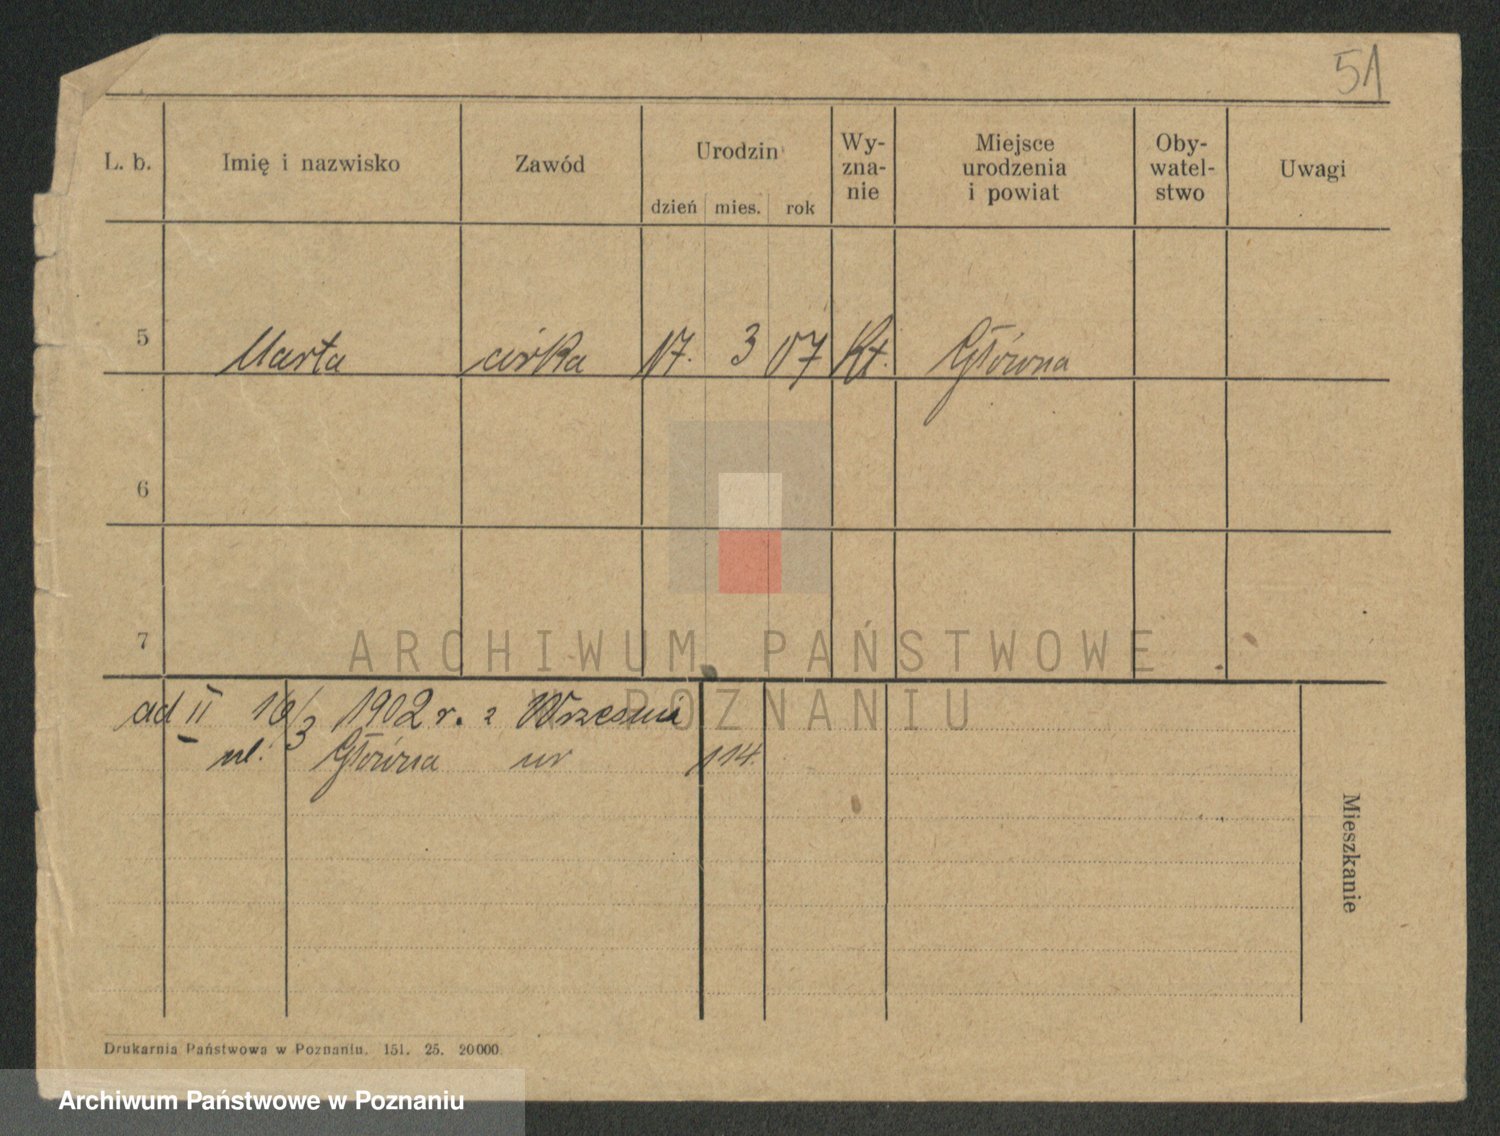 51
L. b. Imię i nazwisko Zawód Urodzin dzień mies. rok Wy-zna-nie Miejsce urodzenia i powiat Oby-watel-stwo Uwagi
5 Marta córka 17. 3 07 Kt. Główna
6
7
ad II 16/3 1902 r. z Wrześni
ul. Główna nr 114.
Mieszkanie
Drukarnia Państwowa w Poznaniu. 151. 25. 20000.
ARCHIWUM PAŃSTWOWE
W POZNANIU
Archiwum Państwowe w Poznaniu